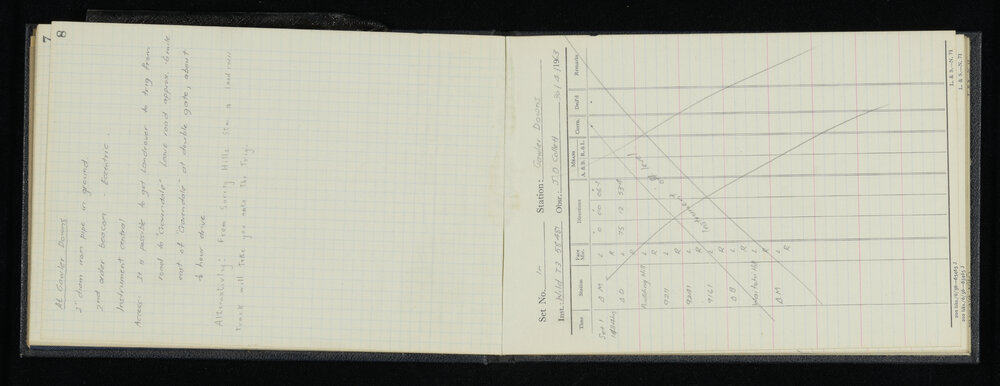 7
8
At Gawler Downs
2" diam iron pipe in ground.
2nd order beacon. Eccentric.
Instrument central
Access: It is possible to get Landrover to trig from
road to "Leave road approx. 6 mile
east of at double gate, about
½ hour drive
Alternatively: From Surrey Hills Stn a landrover
track will take you onto the Trig.
Set No. 1a Station: Gawler Downs
Inst. Wild T3 Obsr. J.O Collett 30/4/1963
Time Station Face Mic Directions Means A. & B. R. & L. Corrn. Ded'd Remarks
Set 1 B M L 0 00 06.1
R
B D L 75 12 53.8
R
Pudding Hill L
R
9211 L
R
9281 L
R
9161 L
R
B B L
R
L
R
B M L
R
L. & S.—N. 71
L. & S.—N. 71